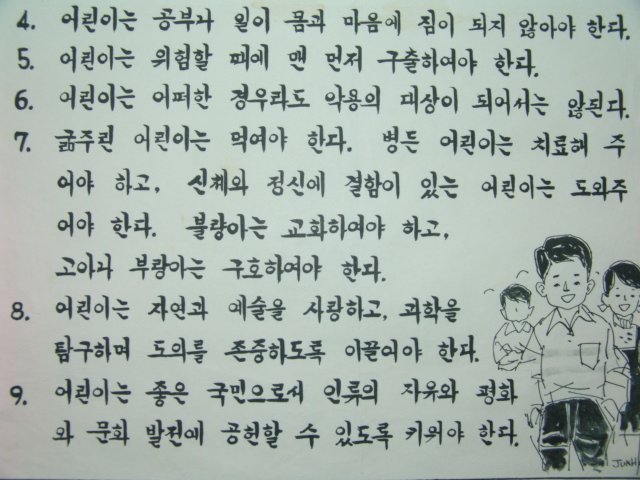 4. 어린이는 공부나 일이 몸과 마음에 짐이 되지 않아야 한다.
5. 어린이는 위험할 때에 맨 먼저 구출하여야 한다.
6. 어린이는 어떠한 경우라도 악용의 대상이 되어서는 않된다.
7. 굶주린 어린이는 먹여야 한다. 병든 어린이는 치료해 주
어야 하고, 신체와 정신에 결함이 있는 어린이는 도와주
어야 한다. 불량아는 교화하여야 하고,
고아나 부랑아는 구호하여야 한다.
8. 어린이는 자연과 예술을 사랑하고, 과학을
탐구하며 도의를 존중하도록 이끌어야 한다.
9. 어린이는 좋은 국민으로서 인류의 자유와 평화
와 문화 발전에 공헌할 수 있도록 키워야 한다.
JUNH